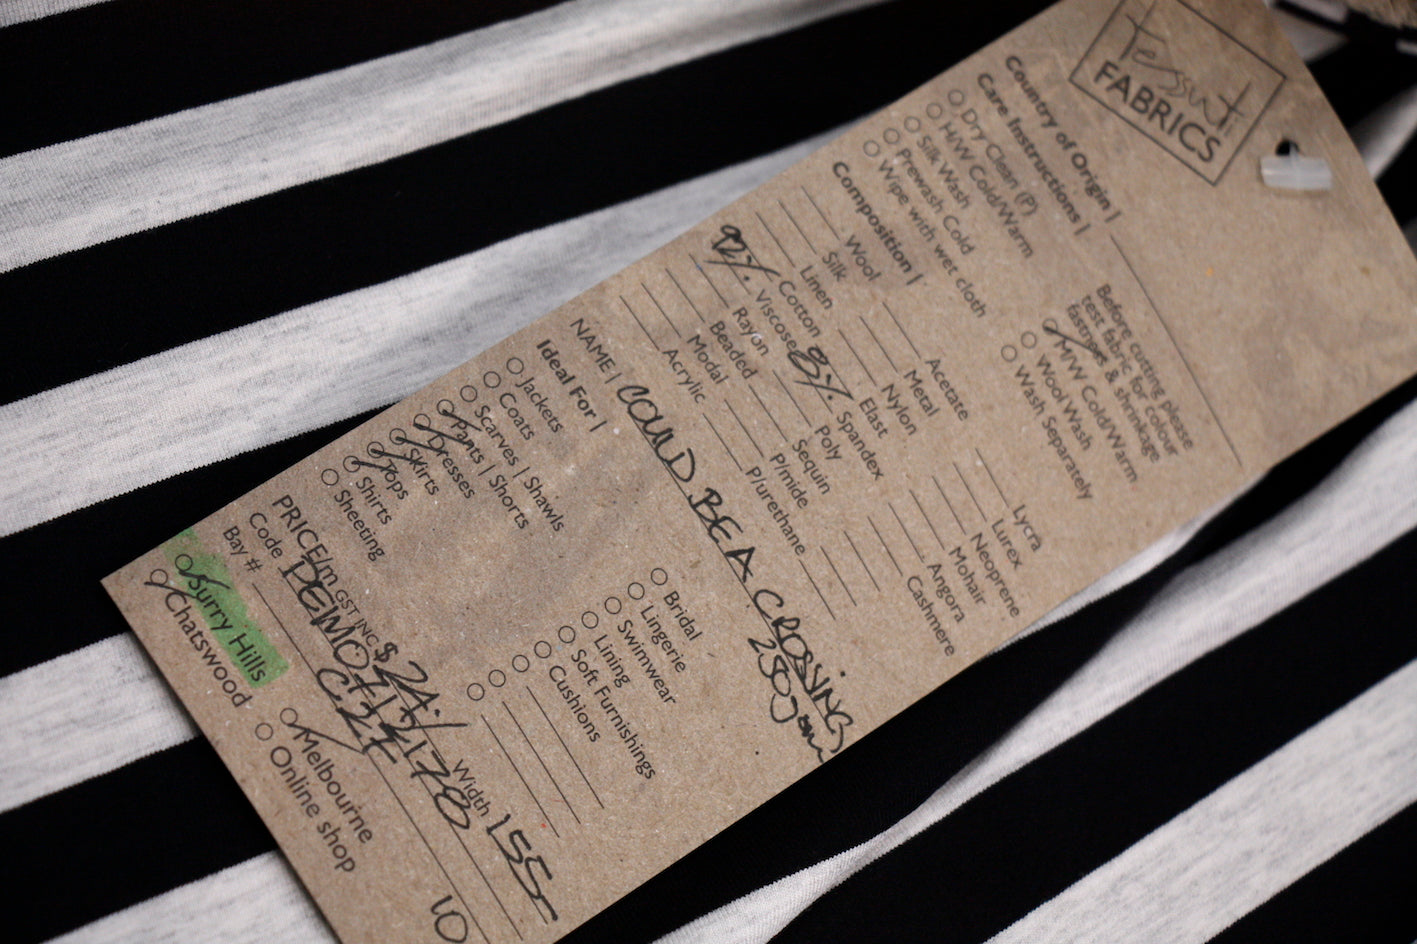 Tessuti
FABRICS
Country of Origin |
Care Instructions |
Dry Clean (P)
H/W Cold/Warm
Silk Wash
Prewash Cold
Wipe with wet cloth
Before cutting please
test fabric for colour
fastness & shrinkage
M/W Cold/Warm
Wool Wash
Wash Separately
Composition |
Wool
Silk
Linen
Cotton
92% Viscose
Rayon
Beaded
Modal
Acrylic
Acetate
Metal
Nylon
Elast
8% Spandex
Poly
Sequin
P/mide
P/urethane
Lycra
Lurex
Neoprene
Mohair
Angora
Cashmere
NAME | COULD BE A CROSSING
250gsm
Ideal For |
Jackets
Coats
Scarves | Shawls
Pants | Shorts
Dresses
Skirts
Tops
Shirts
Sheeting
Bridal
Lingerie
Swimwear
Lining
Soft Furnishings
Cushions
PRICE/m GST INC $
Width 155
Code
Bay # C27
Surry Hills
Chatswood
Melbourne
Online shop